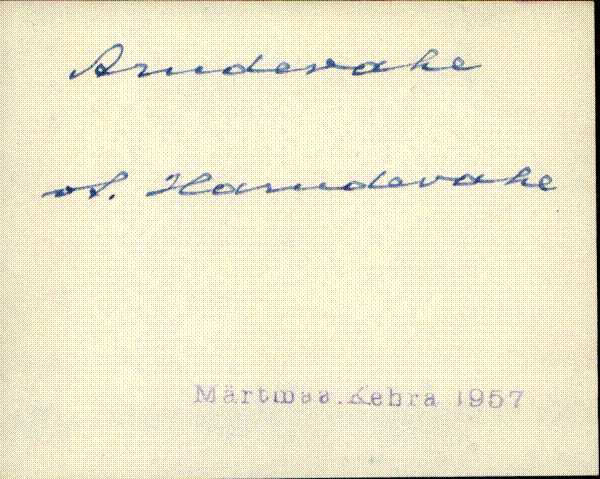 Arudevahe
vt. Harudevahe
Märtmaa.Kehra 1957